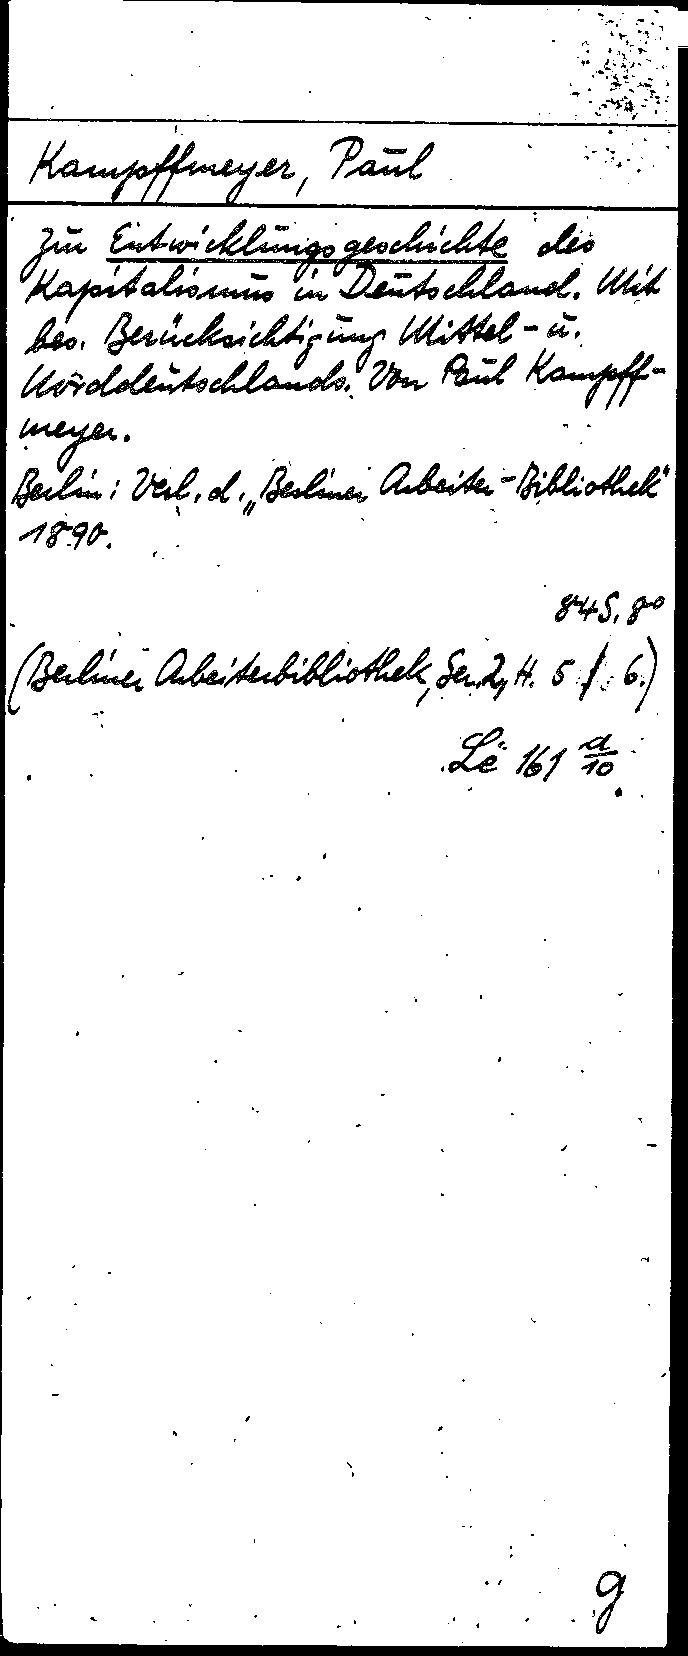 Kampffmeyer, Paul
Zur Entwicklungsgeschichte des
Kapitalismus in Deutschland. Mit
bes. Berücksichtigung Mittel- u.
Norddeutschlands. Von Paul Kampff-
meyer.
Berlin: Verl. d. „Berliner Arbeiter-Bibliothek"
1890.
84 S. 8°
(Berliner Arbeiterbibliothek, Ser. 2, H. 5 / 6.)
Le 161 d/10
g